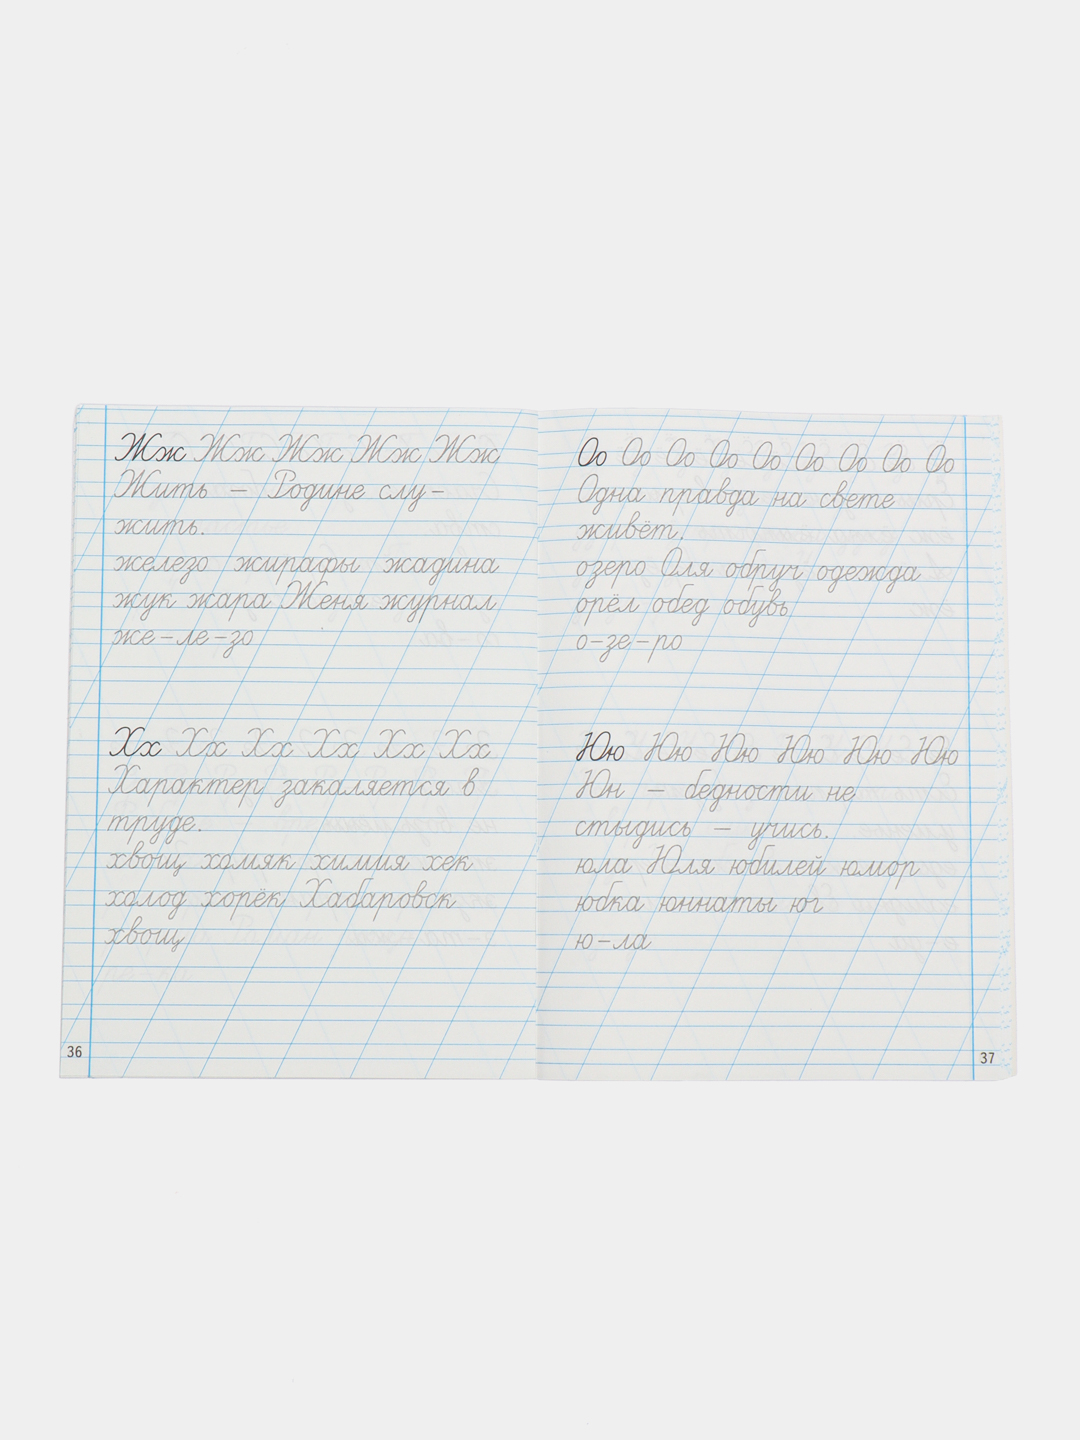 Жж Жж Жж Жж Жж
Жить — Родине слу-
жить.
железо жирафы жадина
жук жара Женя журнал
же-ле-зо
Хх Хх Хх Хх Хх Хх
Характер закаляется в
труде.
хвощ хомяк химия хек
холод хорёк Хабаровск
хвощ
36
Оо Оо Оо Оо Оо Оо Оо Оо Оо
Одна правда на свете
живёт.
озеро Оля обруч одежда
орёл обед обувь
о-зе-ро
Юю Юю Юю Юю Юю Юю
Юн — бедности не
стыдись — учись.
юла Юля юбилей юмор
юбка юннаты юг
ю-ла
37